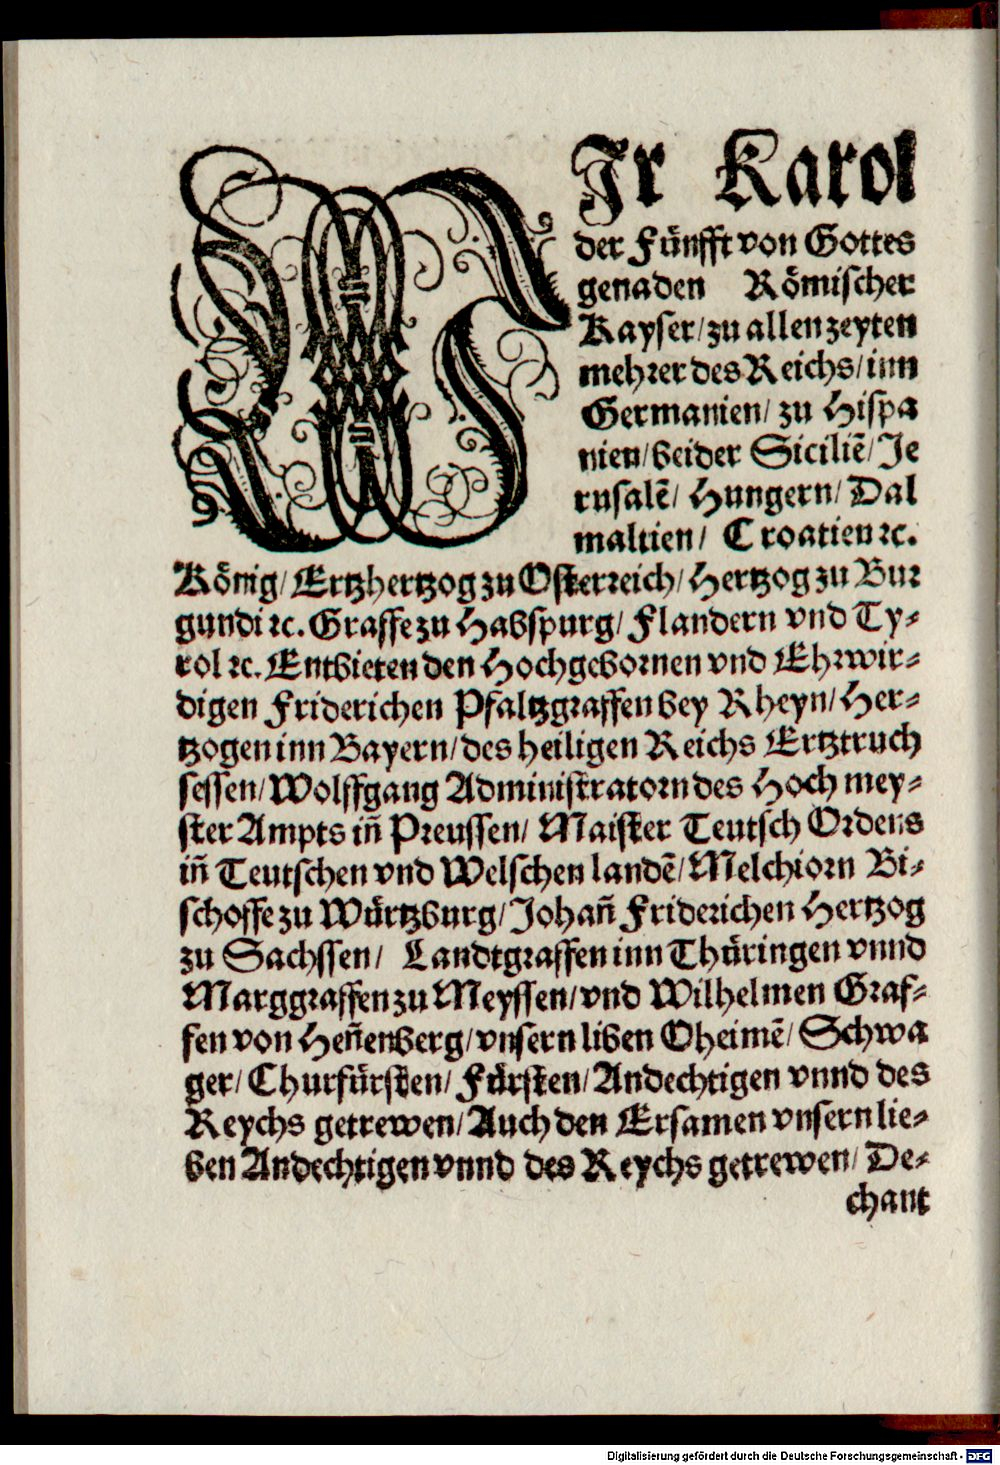 WJr Karol
der Fünfft von Gottes
genaden Römischer
Kayser/ zu allen zeyten
mehrer des Reichs/ inn
Germanien/ zu Hispa
nien/ beider Siciliē/ Je
rusalē/ Hungern/ Dal
maltien/ Croatien ꝛc.
König/ Ertzhertzog zu Osterreich/ Hertzog zu Bur
gundi ꝛc. Graffe zu Habspurg/ Flandern vnd Ty-
rol ꝛc. Entbieten den Hochgebornen vnd Ehrwir-
digen Friderichen Pfaltzgraffen bey Rheyn/ Her-
tzogen inn Bayern/ des heiligen Reichs Ertztruch
sessen/ Wolffgang Administratorn des Hoch mey-
ster Ampts iñ Preussen/ Maister Teutsch Ordens
iñ Teutschen vnd Welschen landē/ Melchiorn Bi-
schoffe zu Würtzburg/ Johañ Friderichen Hertzog
zu Sachssen/ Landtgraffen inn Thüringen vnnd
Marggraffen zu Meyssen/ vnd Wilhelmen Graf-
fen von Heñenberg/ vnsern liben Oheimē/ Schwa
ger/ Churfürsten/ Fürsten/ Andechtigen vnnd des
Reychs getrewen/ Auch den Ersamen vnsern lie-
ben Andechtigen vnnd des Reychs getrewen/ De-
chant
Digitalisierung gefördert durch die Deutsche Forschungsgemeinschaft - DFG